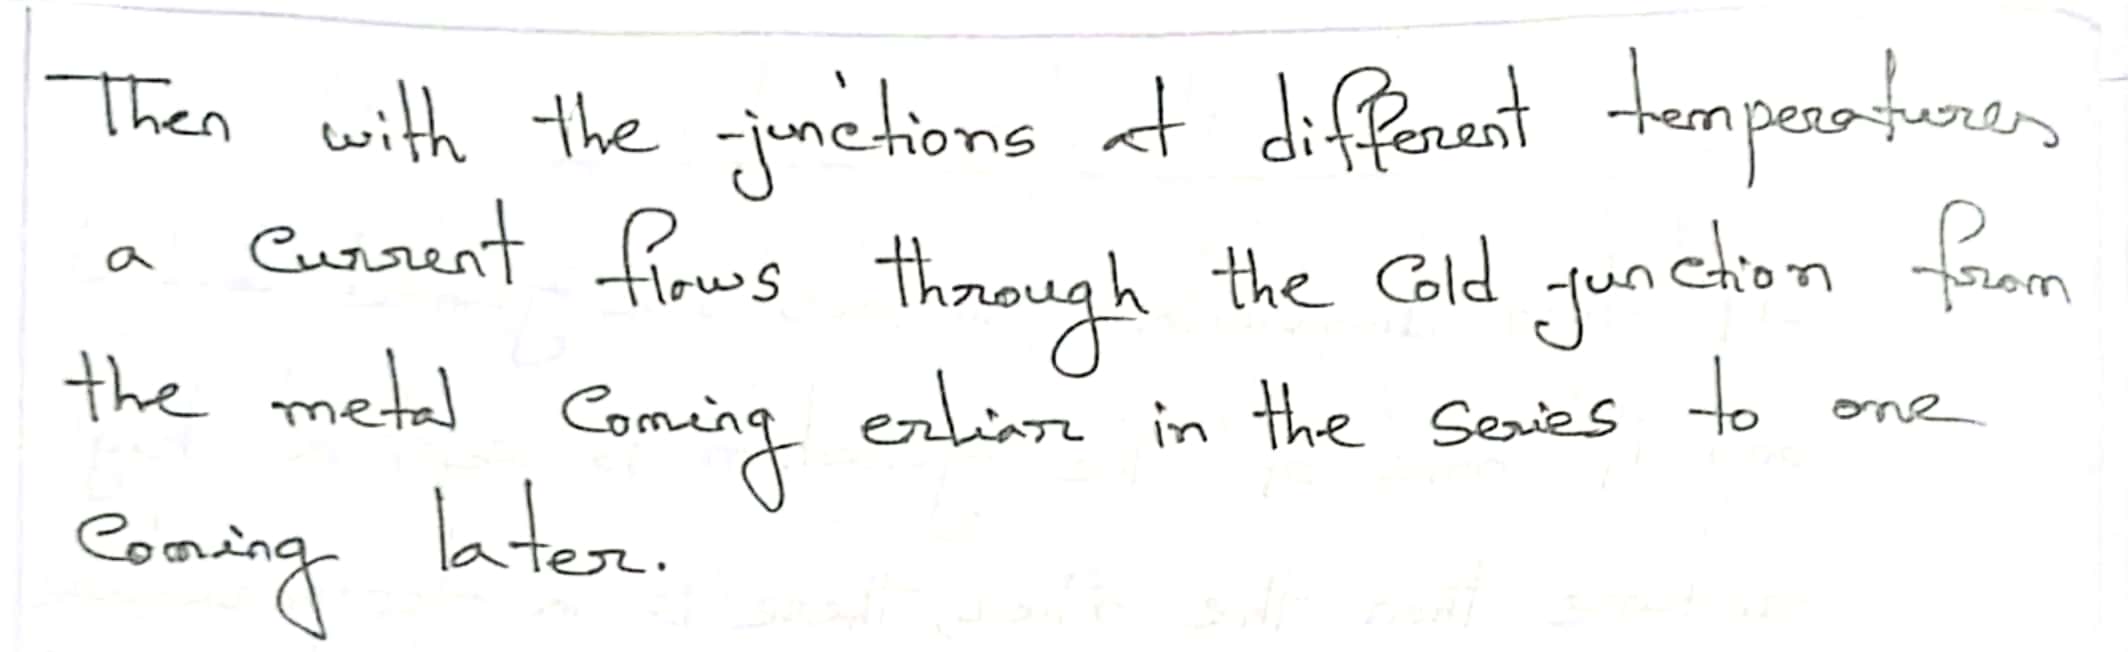 Then with the junctions at different temperatures
a current flows through the cold junction from
the metal coming erliar in the series to one
coming later.